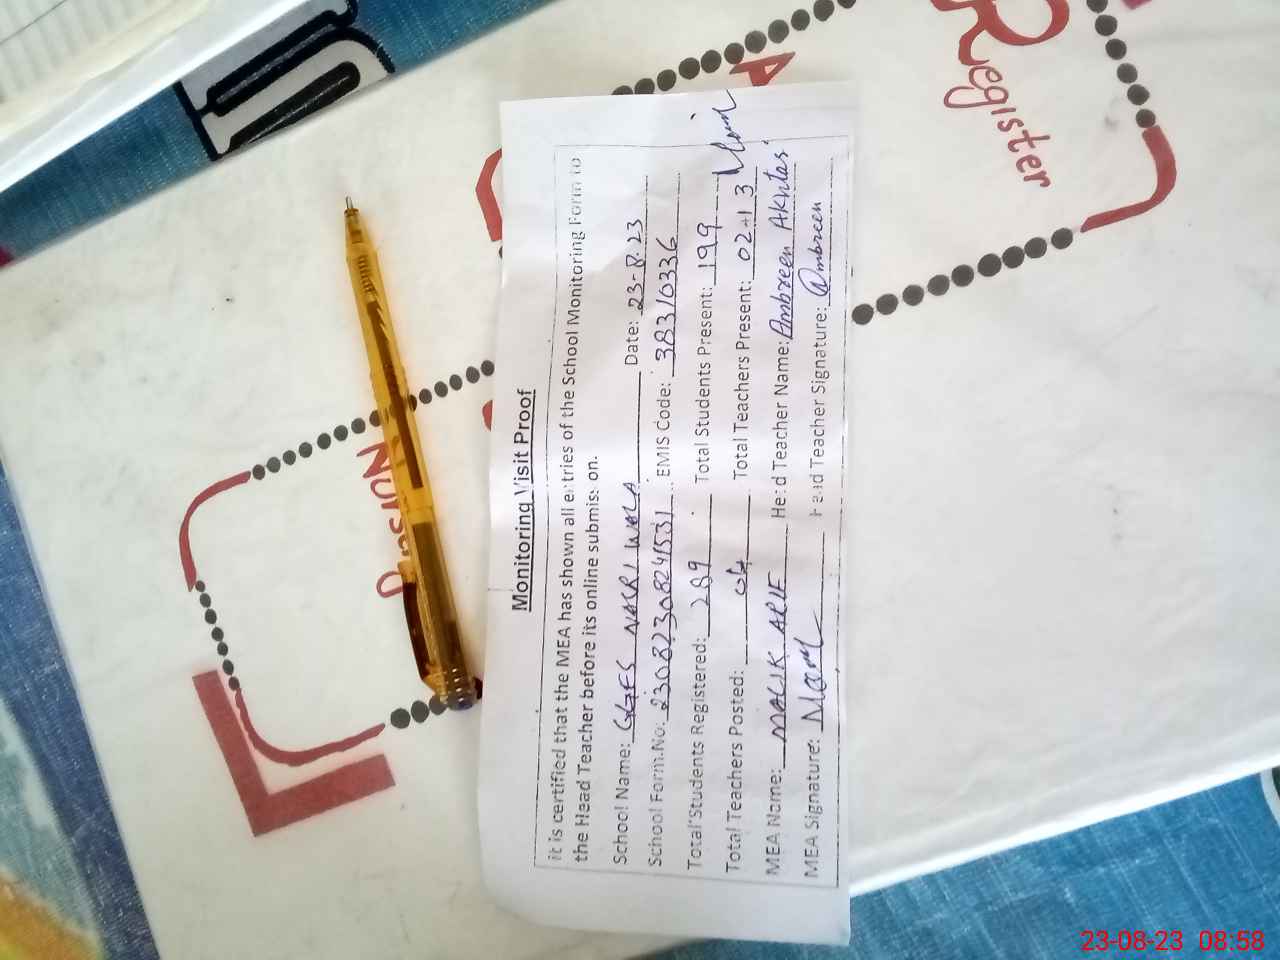 Register
Monitoring Visit Proof
It is certified that the MEA has shown all entries of the School Monitoring Form to
the Head Teacher before its online submission.
School Name: GGES NASRI WALA Date: 23-8-23
School Form No: 23082308241531 EMIS Code: 38310336
Total Students Registered: 289 Total Students Present: 199
Total Teachers Posted: 04 Total Teachers Present: 02+1 3
MEA Name: MALIK ARIF Head Teacher Name: Ambreen Akhtar
MEA Signature: Head Teacher Signature: Ambreen
23-08-23 08:58